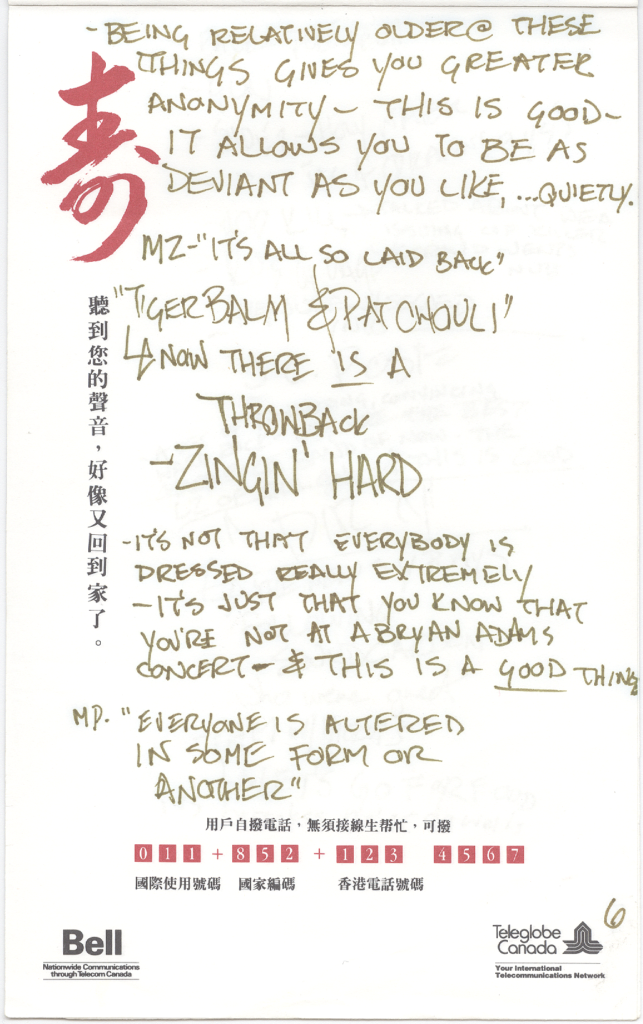 - BEING RELATIVELY OLDER@ THESE
THINGS GIVES YOU GREATER
ANONYMITY - THIS IS GOOD -
IT ALLOWS YOU TO BE AS
DEVIANT AS YOU LIKE, ...QUIETLY.
壽
MZ - "IT'S ALL SO LAID BACK"
"TIGER BALM & PATCHOULI"
↳ NOW THERE IS A
THROWBACK
- ZINGIN' HARD
聽到您的聲音，好像又回到家了。
- IT'S NOT THAT EVERYBODY IS
DRESSED REALLY EXTREMELY
- IT'S JUST THAT YOU KNOW THAT
YOU'RE NOT AT A BRYAN ADAMS
CONCERT - & THIS IS A GOOD THING
MP. "EVERYONE IS ALTERED
IN SOME FORM OR
ANOTHER"
用戶自撥電話，無須接線生帮忙，可撥
011 + 852 + 123 4567
國際使用號碼 國家編碼 香港電話號碼
6
Bell
Nationwide Communications
through Telecom Canada
Teleglobe
Canada
Your International
Telecommunications Network